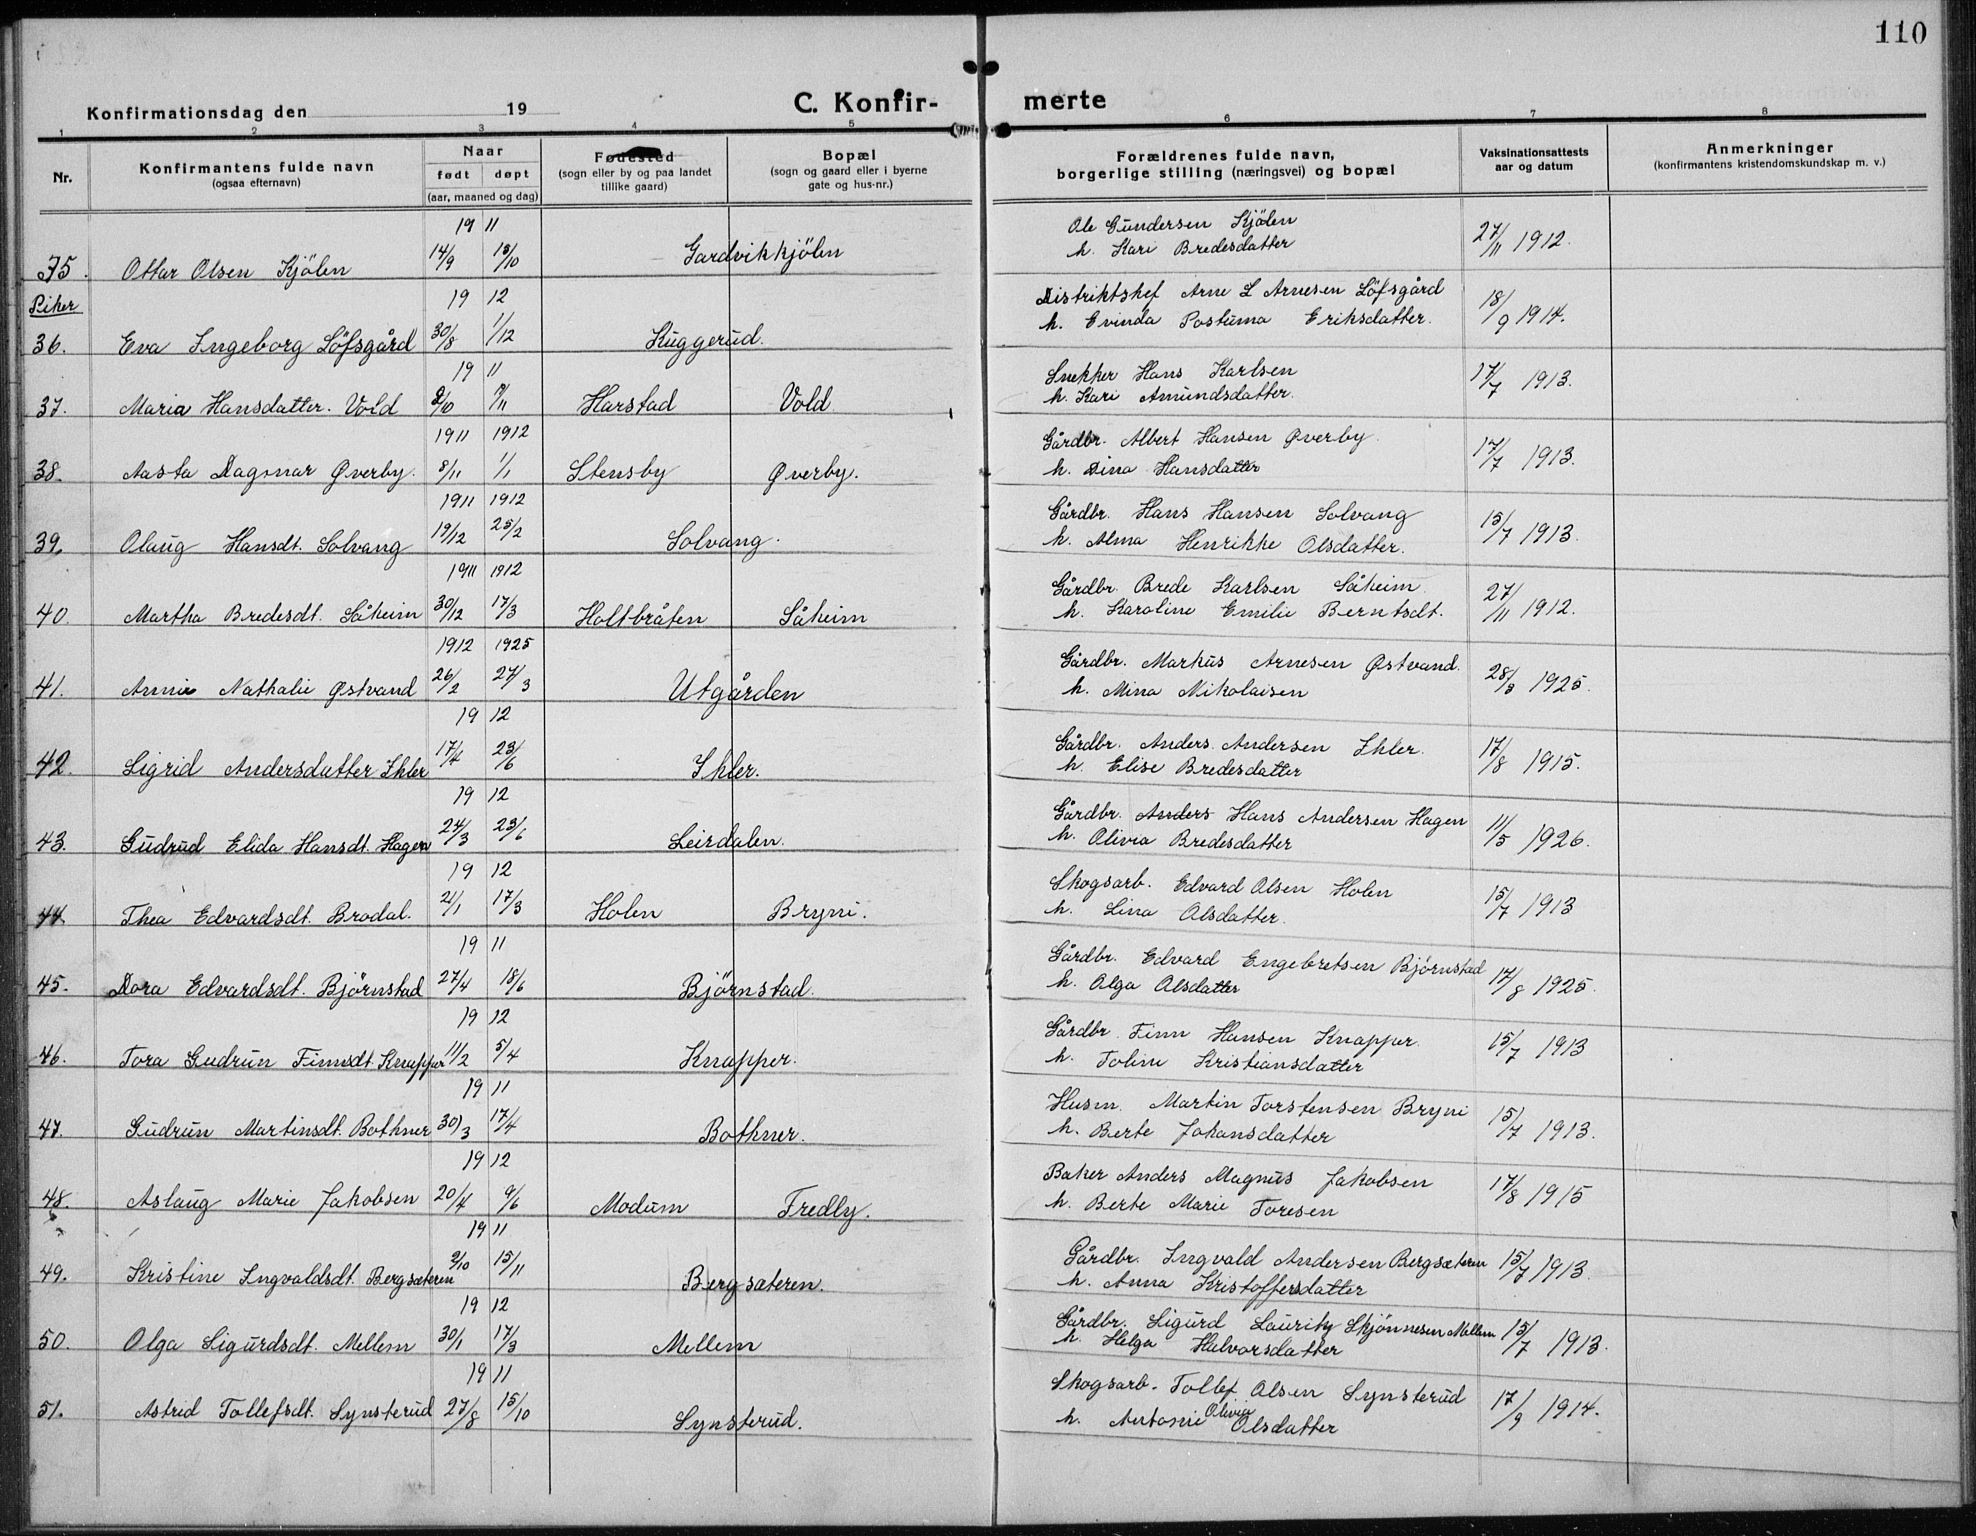 110
Konfirmationsdag den 19
C. Konfir- merte
1 2 3 4 5 6 7 8
Nr.
Konfirmantens fulde navn
(ogsaa efternavn)
Naar
født døpt
(aar, maaned og dag)
Fødested
(sogn eller by og paa landet
tillike gaard)
Bopæl
(sogn og gaard eller i byerne
gate og hus-nr.)
Forældrenes fulde navn,
borgerlige stilling (næringsvei) og bopæl
Vaksinationsattests
aar og datum
Anmerkninger
(konfirmantens kristendomskundskap m. v.)
19 11
Ole Gundersen Kjölen
35. Ottar Olsen Kjölen 14/9 15/10 Gardvikkjölen h. Kari Bredesdatter 27/11 1912.
Piker
19 12
Distriktshef Arne L Arnesen Löfsgård
36. Eva Ingeborg Löfsgård 30/8 1/12 Kuggerud. h. Evinda Postuma Eriksdatter. 18/9 1914.
19 11
Snekker Hans Karlsen
37. Maria Hansdatter. Vold 2/10 5/11 Harstad Vold h. Kari Amundsdatter. 17/7 1913.
1911 1912
Gårdbr. Albert Hansen Øverby.
38. Aasta Dagmar Øverby. 8/11 1/1 Stensby Øverby. h. Dina Hansdatter 17/7 1913.
1911 1912
Gårdbr. Hans Hansen Solvang
39. Olaug Hansdt. Solvang 19/12 25/2 Solvang. h. Alma Henrikke Olsdatter. 15/7 1913.
1911 1912
Gårdbr. Brede Karlsen Såheim
40. Martha Bredesdt. Såheim 30/12 17/3 Holtbråten Såheim h. Karoline Emilie Berntsdt. 27/11 1912.
1912 1925
Gårdbr. Markus Arnesen Østvand.
41. Annie Nathalie Østvand 26/2 27/3 Utgården h. Mina Nikolaisen 28/3 1925.
19 12
Gårdbr. Anders Andersen Ihler.
42. Sigrid Andersdatter Ihler 17/4 23/6 Ihler. h. Elise Bredesdatter 17/8 1915.
19 12
Gårdbr. Anders Hans Andersen Hagen
43. Gudrud Elida Hansdt. Hagen 24/3 23/6 Leirdalen. h. Olivia Bredesdatter 11/5 1926.
19 12
Skogsarb. Edvard Olsen Holen
44. Thea Edvardsdt. Brodal. 21/1 17/3 Holen Bryni. h. Lina Olsdatter. 15/7 1913
19 11
Gårdbr. Edvard Engebretsen Björnstad
45. Dora Edvardsdt. Björnstad 27/4 18/6 Björnstad. h. Olga Olsdatter 17/8 1925.
19 12
Gårdbr. Finn Hansen Knapper.
46. Tora Gudrun Finnsdt. Knapper 11/2 5/4 Knapper. h. Toline Kristiansdatter 15/7 1913
19 11
Husm. Martin Torstensen Bryni
47. Gudrun Martinsdt. Bothner 30/3 17/4 Bothner. h. Berte Johansdatter 15/7 1913.
19 12
Baker Anders Magnus Jakobsen
48. Aslaug Marie Jakobsen 20/4 9/6 Modum Fredly. h. Berte Marie Toresen 17/8 1915
19 11
Gårdbr. Ingvald Andersen Bergsæteren
49. Kristine Ingvaldsdt. Bergsæteren 9/10 15/11 Bergsæteren. h. Anna Kristoffersdatter 15/7 1913.
19 12
Gårdbr. Sigurd Lauritz Skjönnesen Mellem
50. Olga Sigurdsdt. Mellem 30/1 17/3 Mellem h. Helga Halvorsdatter 15/7 1913.
19 11
Skogsarb. Tollef Olsen Synsterud
51. Astrid Tollefsdt. Synsterud 27/8 15/10 Synsterud. h. Antonie Olivia Olsdatter 17/9 1914.